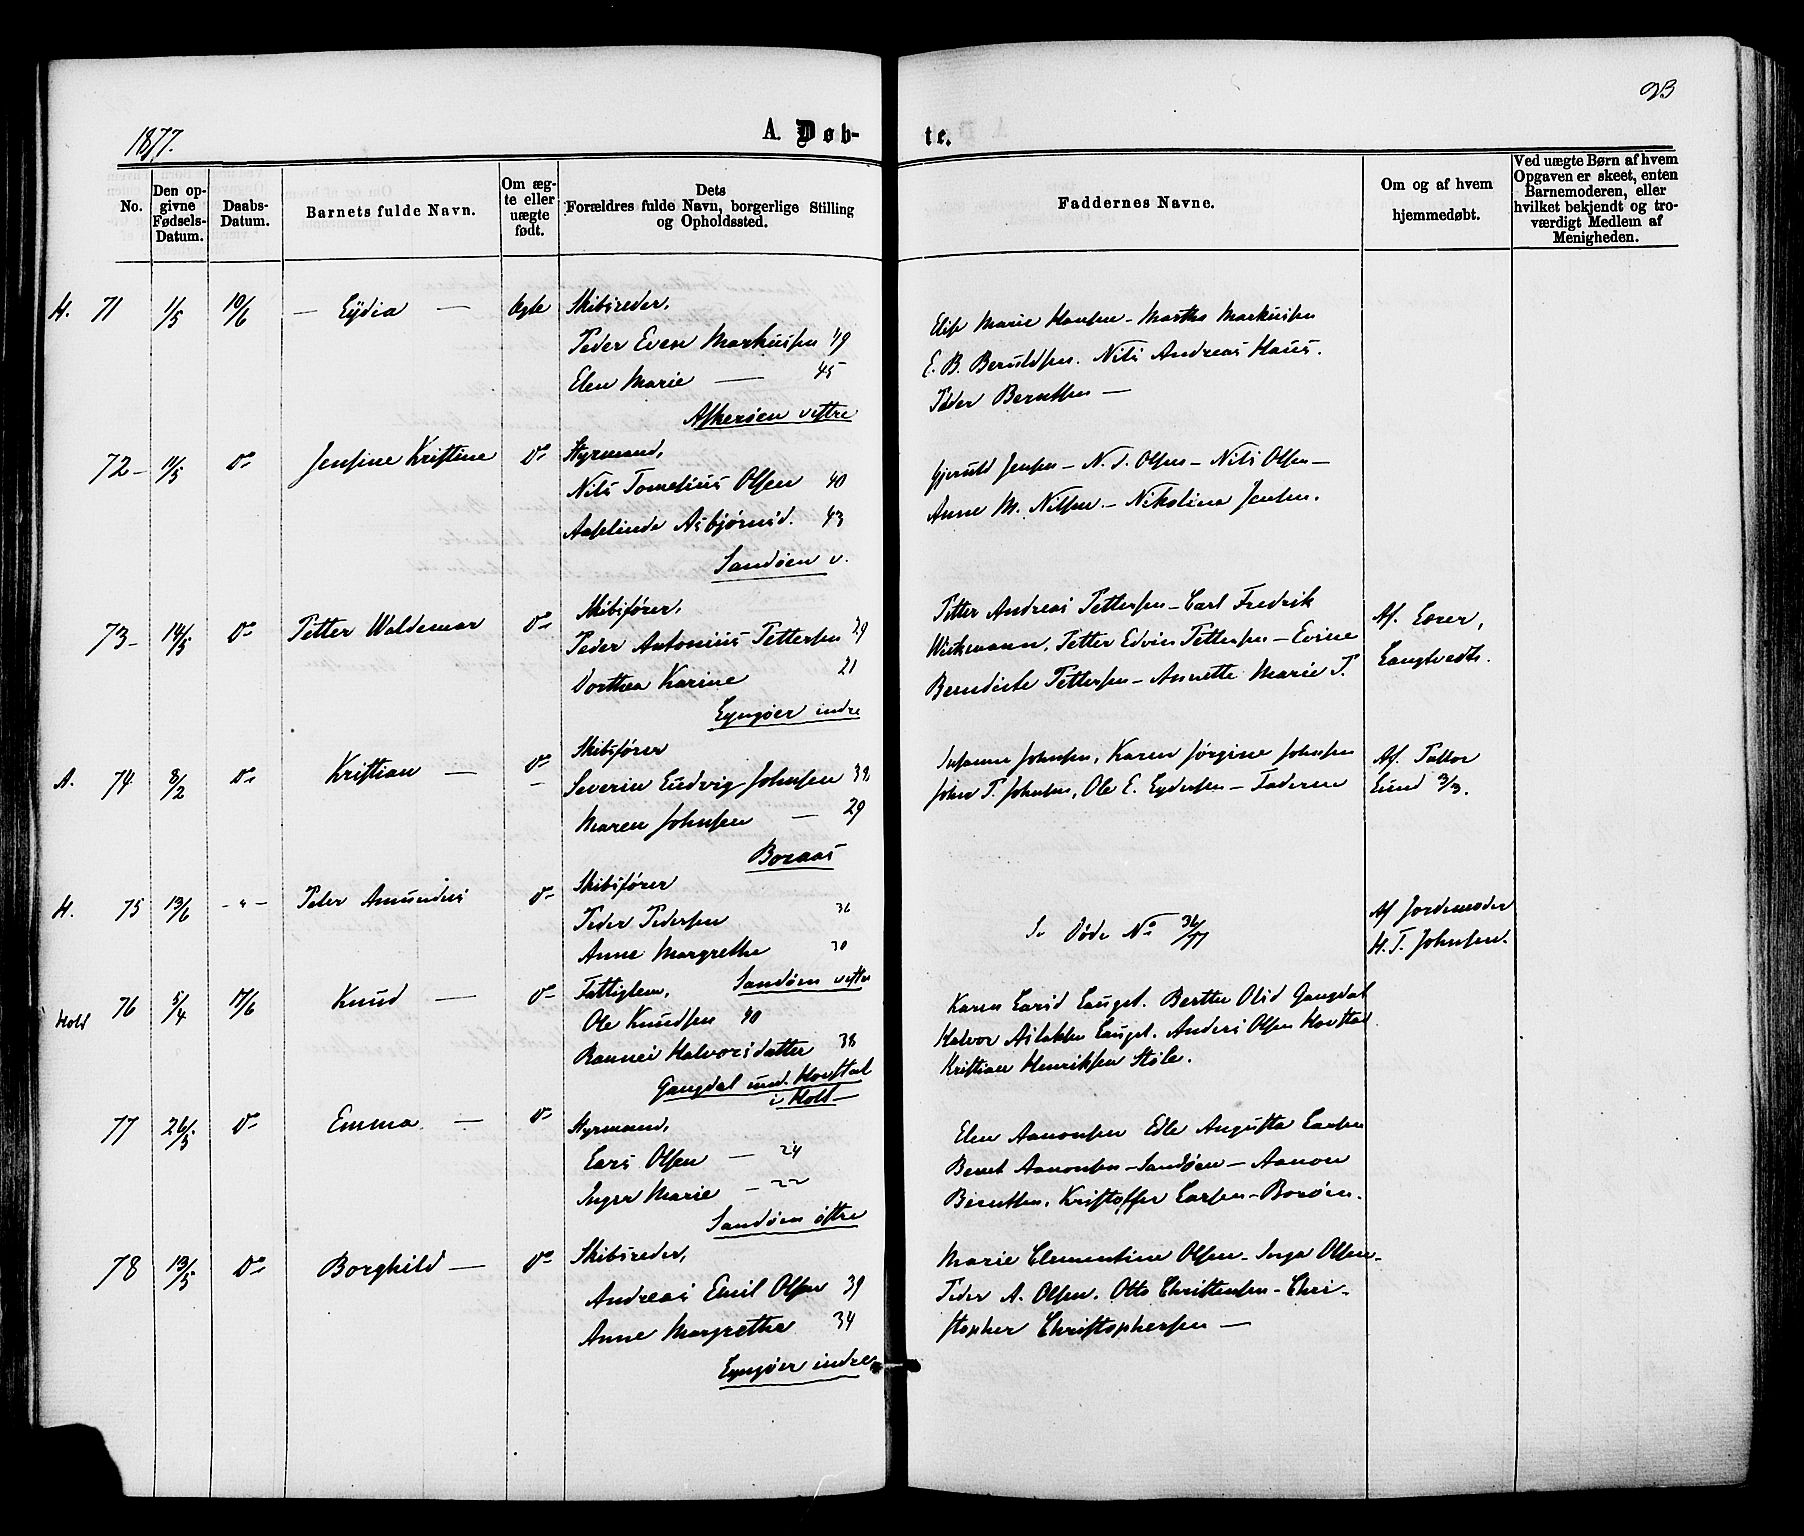 23
1877.
A. Døb-
te.
No.
Den op-
givne
Fødsels-
Datum.
Daabs-
Datum.
Barnets fulde Navn.
Om æg-
te eller
uægte
født.
Dets
Forældres fulde Navn, borgerlige Stilling
og Opholdssted.
Faddernes Navne.
Om og af hvem
hjemmedøbt.
Ved uægte Børn af hvem
Opgaven er skeet, enten
Barnemoderen, eller
hvilket bekjendt og tro-
værdigt Medlem af
Menigheden.
H. 71 1/5 10/6 — Lydia — Ægte Skibsreder,
Peder Even Markussen 49
Elen Marie — 45
Askerøen vestre
Elise Marie Hansen - Martha Markussen
E. B. Beruldsen. Nils Andreas Haus.
Peder Berntsen —
72 - 11/5 Do Jensine Kristine Do Styrmand,
Nils Tomesius Olsen 40
Aaselinde Asbjørnsd. 43
Sandøen v.
Gjeruld Jensen - N. T. Olsen - Nils Olsen -
Anne M. Nilsen - Nikoline Jensen.
73 - 14/5 Do Petter Waldemar Do Skibsfører,
Peder Antonius Pettersen 29
Dorthea Karine 21
Lyngøer indre
Petter Andreas Pettersen - Carl Fredrik
Wickmann, Petter Edvin Pettersen - Evine
Benedicte Pettersen - Annette Marie P.
Af. Lærer,
Langtvedt.
A. 74 8/2 Do Kristian — Do Skibsfører
Severin Ludvig Johnsen 39
Maren Johnsen — 29
Boraas
Susanne Johnsen, Karen Jørgine Johnsen
John P. Johnsen, Ole E. Eydersen - Faderen
Af. Pastor
Lund 3/3.
H. 75 13/6 - " - Peter Amundus Do Skibsfører
Peder Pedersen 36
Anne Margrethe 30
Sandøen vestre
Se Døde No 36/77
Af Jordemoder
H. T. Johnsen.
Holt 76 5/4 17/6 Knud — Do Fattiglem,
Ole Knudsen 40
Rannei Halvorsdatter 38
Gangdal und. Hovstal
i Holt —
Karen Larsd Lauget. Berthe Olsd Gangdal
Halvor Aslaksen Lauget. Anders Olsen Hovstal
Kristian Henriksen Støle.
77 26/5 Do Emma — Do Styrmand,
Lars Olsen — 24
Inger Marie — 22
Sandøen østre
Elen Aanonsen Edle Augusta Larsen
Bernt Aanonsen - Sandøen - Aanon
Berntsen, Kristoffer Larsen - Borøen.
78 13/5 Do Borghild — Do Skibsreder,
Andreas Emil Olsen 39
Anne Margrethe 34
Lyngøer indre
Marie Clementine Olsen - Inga Olsen -
Peder A. Olsen. Otto Christensen - Chri-
stopher Christophersen —